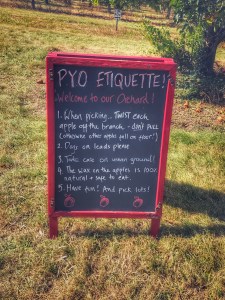 PYO ETIQUETTE!
Welcome to our Orchard!
1. When picking... TWIST each
apple off the branch - don't PULL
(otherwise other apples fall on floor!)
2. Dogs on leads please
3. Take care on uneven ground!
4. The wax on the apples is 100%
natural + safe to eat.
5. Have fun! And pick lots!